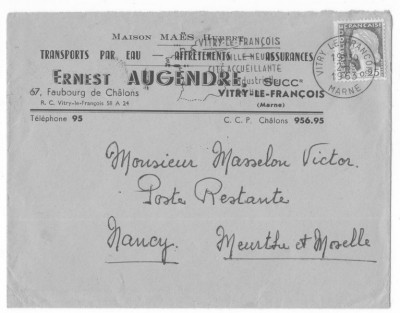 MAISON MAËS HUBERT
TRANSPORTS PAR EAU — AFFRÈTEMENTS ASSURANCES
ERNEST AUGENDRE, SUCCR
67, Faubourg de Châlons
VITRY-LE-FRANÇOIS
R. C. Vitry-le-François 38 A 24
(Marne)
Téléphone 95
C. C. P. Châlons 956.95
VITRY-LE-FRANÇOIS
VILLE NEUVE
CITÉ ACCUEILLANTE
industrielle
VITRY LE FRANÇOIS
1963
MARNE
0,25
Monsieur Masselon Victor.
Poste Restante
Nancy. Meurthe et Moselle